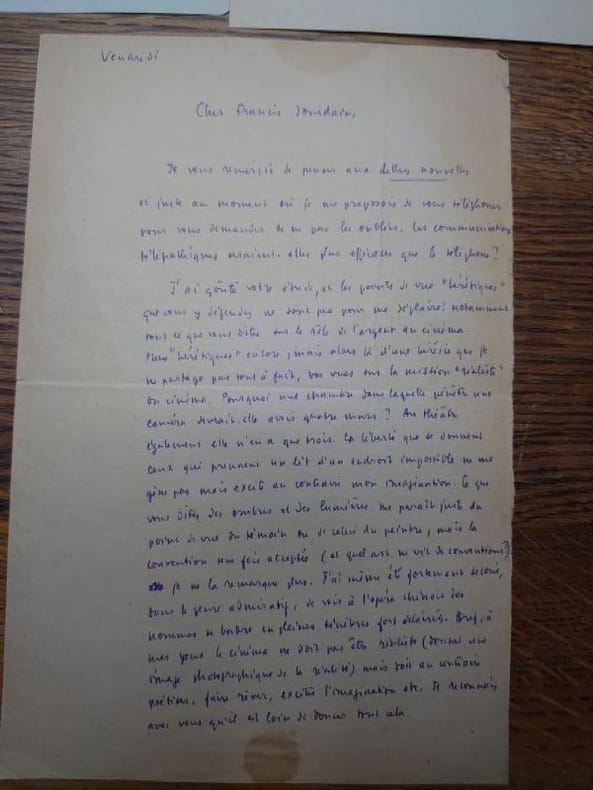 Vendredi
Cher Francis Jourdain,
Je vous remercie de penser aux Lettres nouvelles
et juste au moment où je me proposais de vous téléphoner
pour vous demander de ne pas les oublier. Les communications
télépathiques seraient-elles plus efficaces que le téléphone ?
J'ai goûté votre étude, et les points de vue "hérétiques"
que vous y défendez ne sont pas pour me déplaire : notamment
tout ce que vous dites sur le rôle de l'argent au cinéma.
"hérétiques" encore, mais alors là d'une hérésie que je
ne partage pas tout à fait, vos vues sur la mission "réaliste"
du cinéma. Pourquoi une chambre dans laquelle pénètre une
caméra devrait-elle avoir quatre murs ? Au théâtre
également elle n'en a que trois. La liberté que se donnent
ceux qui prennent un lit d'un endroit impossible ne me
gêne pas mais excite au contraire mon imagination. Ce que
vous dites des ombres et des lumières me paraît juste du
point de vue du témoin ou de celui du peintre, mais la
convention une fois acceptée (et quel art ne vit de conventions ?)
je ne la remarque plus. J'ai même été fortement secoué,
dans le genre admiratif, de voir à l'opéra chinois des
hommes se battre en pleines ténèbres fort éclairées. Bref, à
mes yeux le cinéma ne doit pas être réaliste (donner une
image photographique de la réalité) mais doit au contraire
faire rêver, exciter l'imagination etc. Je reconnais
avec vous qu'il est loin de donner tout cela.